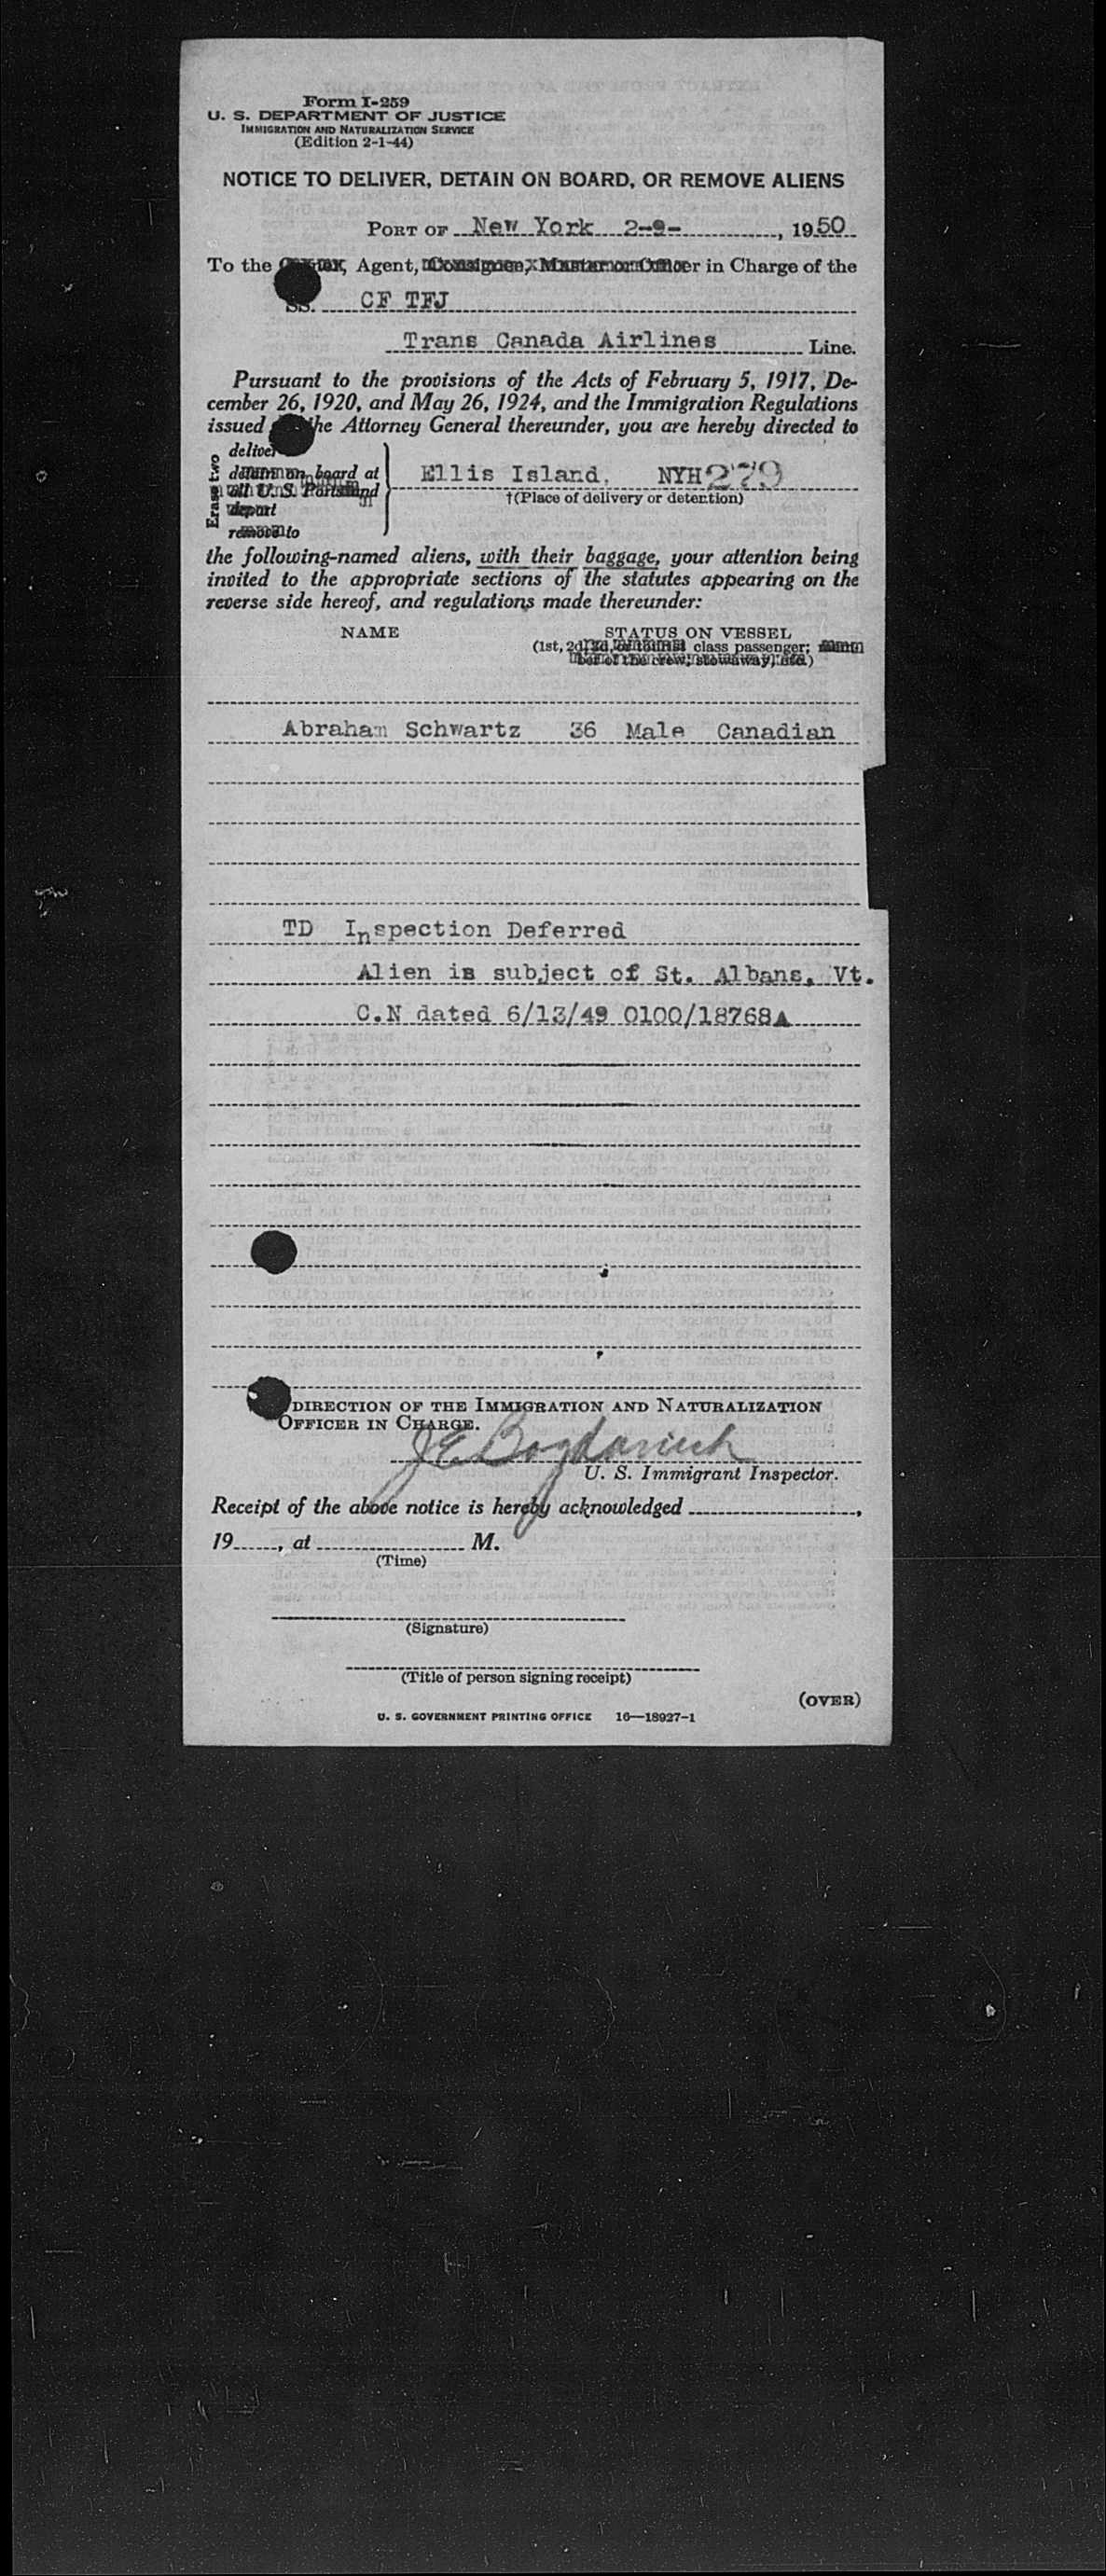 Form I-259
U. S. DEPARTMENT OF JUSTICE
IMMIGRATION AND NATURALIZATION SERVICE
(Edition 2-1-44)
NOTICE TO DELIVER, DETAIN ON BOARD, OR REMOVE ALIENS
PORT OF New York 2-9- , 1950
To the Agent, Consignee, Master or Officer in Charge of the
SS. CF TFJ
Trans Canada Airlines Line.
Pursuant to the provisions of the Acts of February 5, 1917, De-
cember 26, 1920, and May 26, 1924, and the Immigration Regulations
issued the Attorney General thereunder, you are hereby directed to
Erase two
deliver
detain on board at
all U. S. Ports and
depart
remove to
Ellis Island, NYH 279
†(Place of delivery or detention)
the following-named aliens, with their baggage, your attention being
invited to the appropriate sections of the statutes appearing on the
reverse side hereof, and regulations made thereunder:
NAME STATUS ON VESSEL
(1st, 2d, 3d, or tourist class passenger; mem-
ber of the crew; stowaway, etc.)
Abraham Schwartz 36 Male Canadian
TD Inspection Deferred
Alien is subject of St. Albans, Vt.
C.N dated 6/13/49 0100/18768A
DIRECTION OF THE IMMIGRATION AND NATURALIZATION
OFFICER IN CHARGE.
J E Bogdanich
U. S. Immigrant Inspector.
Receipt of the above notice is hereby acknowledged ,
19 , at M.
(Time)
(Signature)
(Title of person signing receipt)
(OVER)
U. S. GOVERNMENT PRINTING OFFICE 16—18927-1